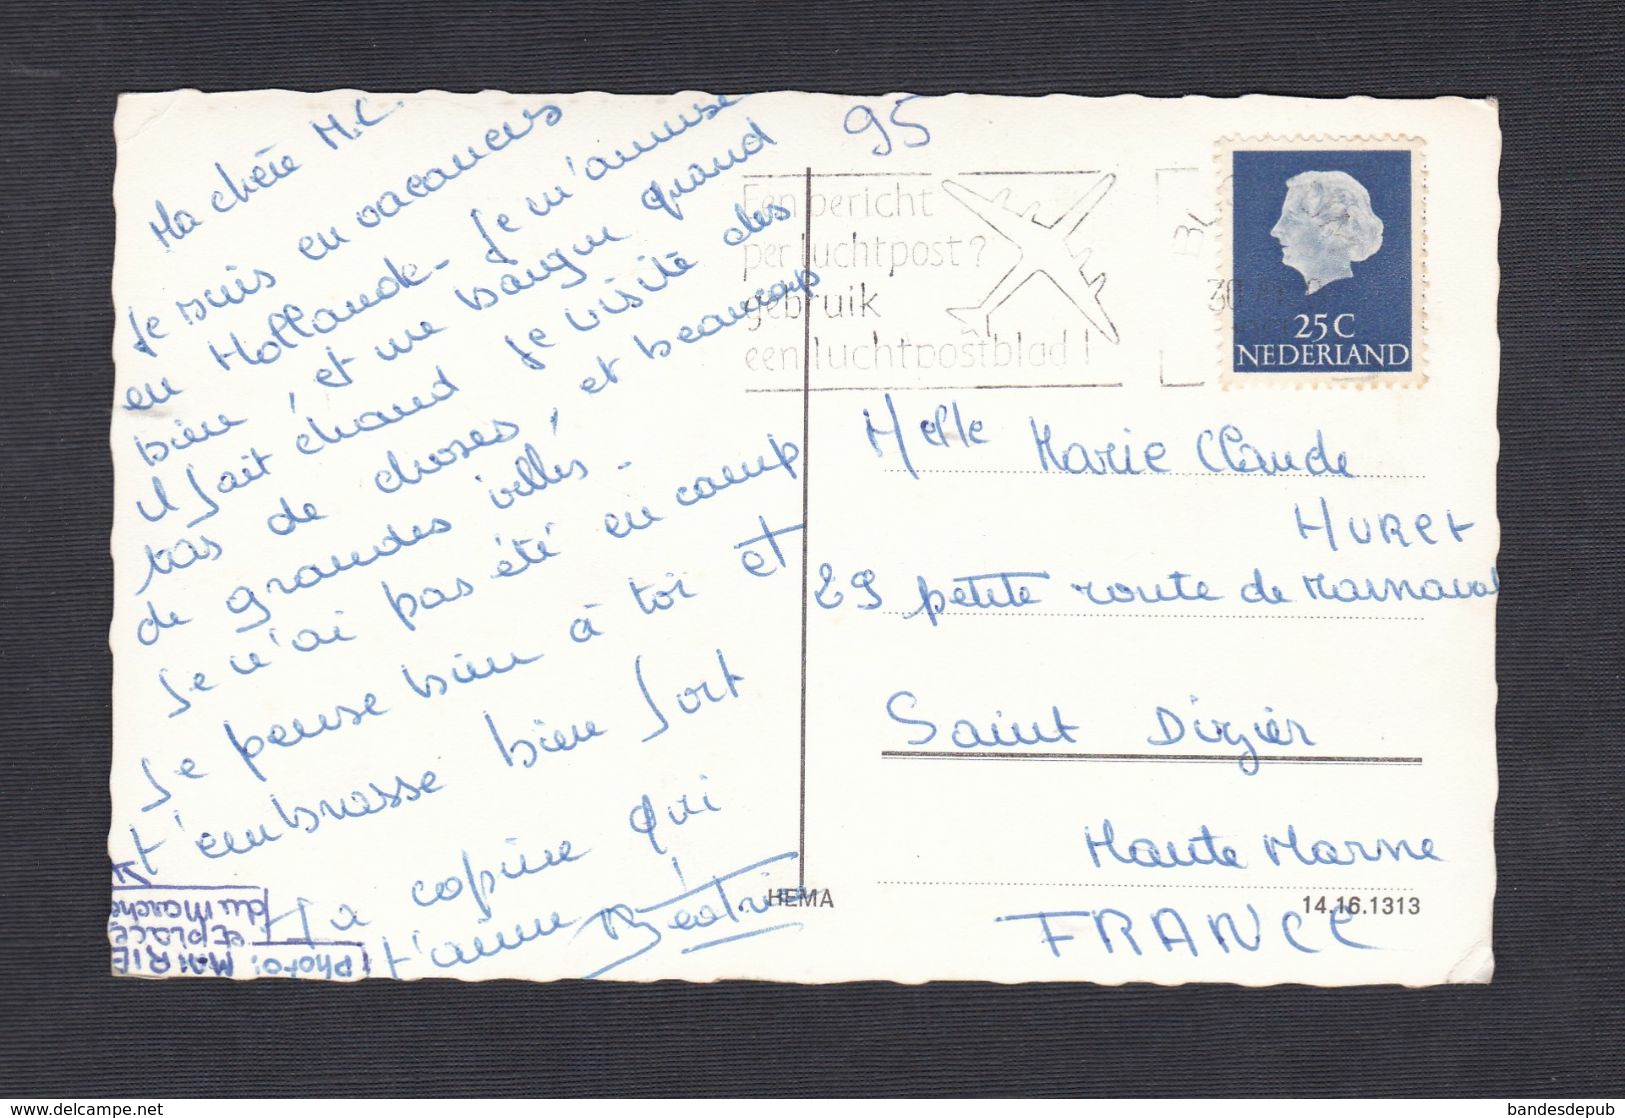 Ma chère M.C.
Je suis en vacances
en Hollande - Je m'amuse
bien, et me baigne quand
il fait chaud Je visite des
tas de choses, et beaucoup
de grandes villes -
Je n'ai pas été en camp
Je pense bien à toi et
t'embrasse bien fort
Ta copine qui
t'aime Béatrice
Photo: MAIRIE
et place
du marché
95
Een bericht
per luchtpost?
gebruik
een luchtpostblad!
30
25 C
NEDERLAND
Melle Marie Claude
HURET
29 petite route de Marnaval
Saint Dizier
Haute Marne
FRANCE
HEMA
14.16.1313
bandesdepub
www.delcampe.net